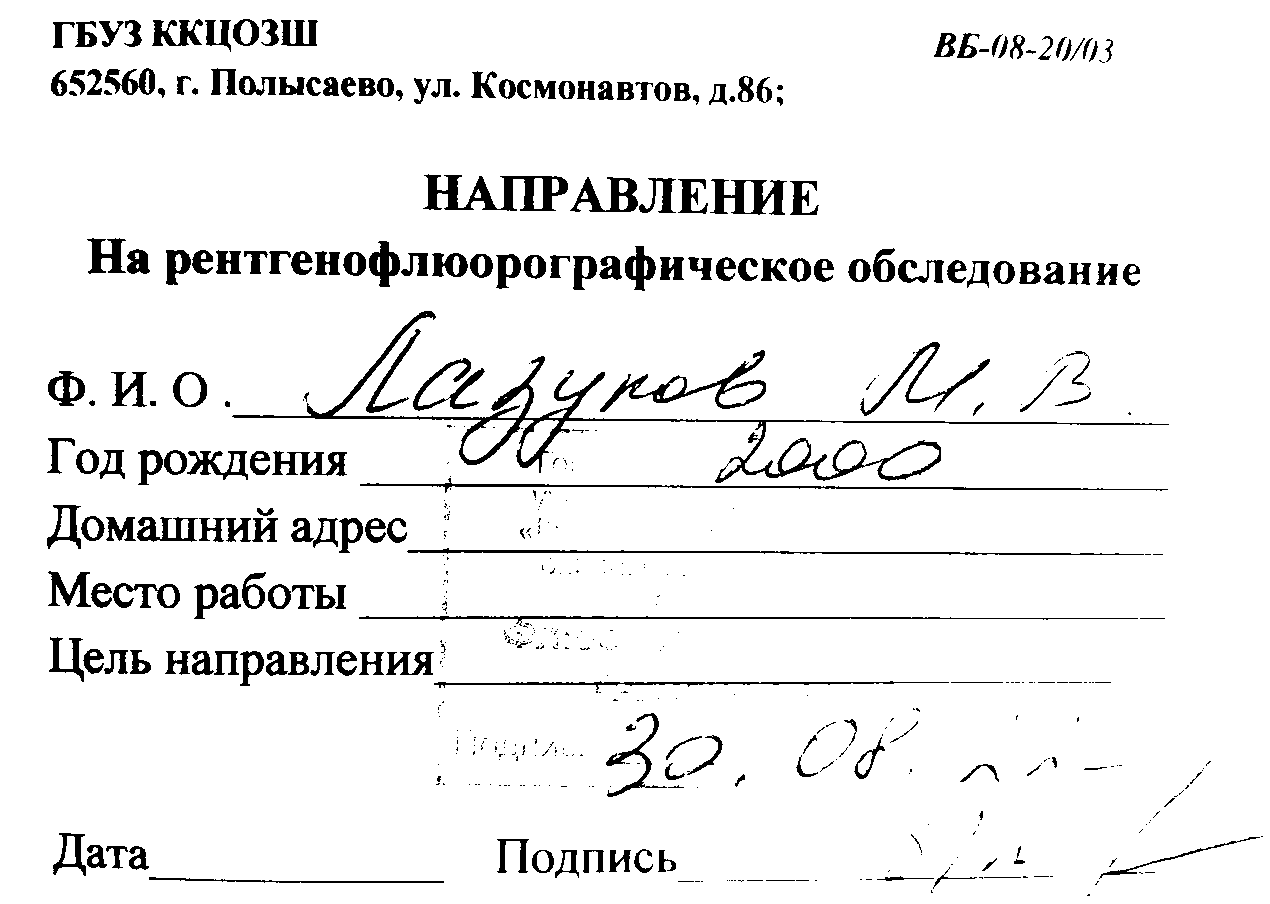 ГБУЗ ККЦОЗШ
ВБ-08-20/03
652560, г. Полысаево, ул. Космонавтов, д.86;
НАПРАВЛЕНИЕ
На рентгенофлюорографическое обследование
Ф. И. О . Лазуков М. В
Год рождения 2000
Домашний адрес
Место работы
Цель направления
30. 08.
Дата Подпись